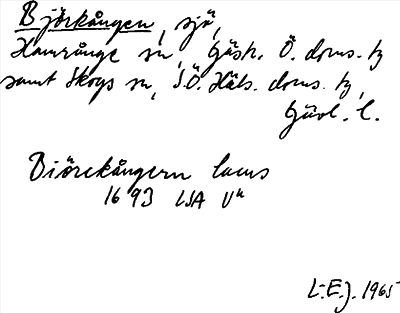 Björkången, sjö,
Hamrånge sn, Gästr. Ö. doms. tg
samt Skogs sn, S.Ö. Häls. doms. tg,
Gävl. l.
Biörckångern lacus
1693 LSA U"
L-E.J. 1965